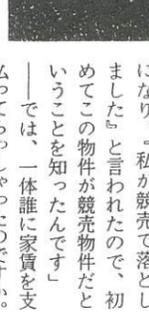 になり、『私が競売で落とし
ました』と言われたので、初
めてこの物件が競売物件だと
いうことを知ったんです」
――では、一体誰に家賃を支
払ってらっしゃったのですか。